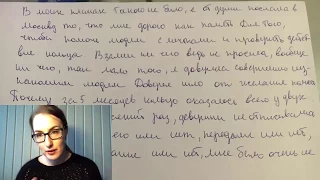 В моих планах такого не было, я от души послала в
Москву то, что мне дорого как память для того,
чтобы помочь людям с личками и проверить действие
вие кольца. Взамен ни чего ведь не просила, вообще
ни чего, тем более того, я доверила совершенно
людям. Доверие шло от желания
Почему за 5 месяцев кольцо оказалось всего у двух
раз, девушки не отписались
его или нет, передали или нет,
или нет, мне было очень не